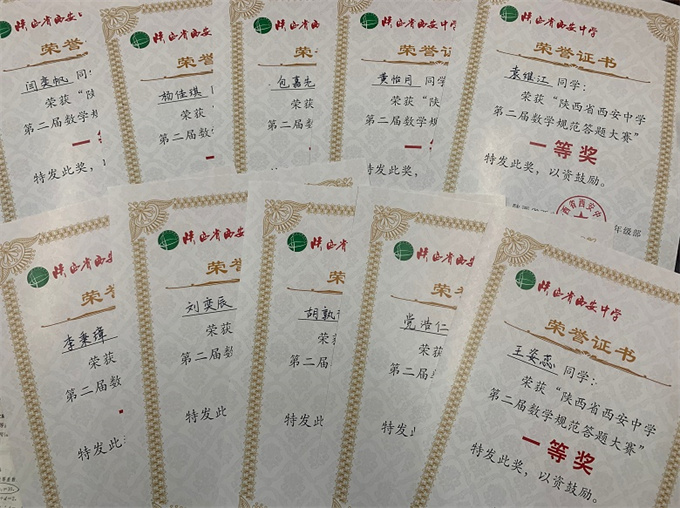 陕西省西安中
荣誉
闫奕帆 同
荣获“陕
第二届数
特发此奖,
陕西省西安
荣誉
杨佳琪
荣获
第二届数
特发此奖
陕西省西安
荣誉
包嘉先
荣获
第二届数
特发此奖
陕西省西安中
荣誉证
黄怡同 同学
荣获“陕
第二届数学规
特发此奖,
陕西省西安中学
荣誉证书
袁继江 同学:
荣获“陕西省西安中学
第二届数学规范答题大赛”
一等奖
特发此奖,以资鼓励。
年级部
陕西省西安
荣誉
李秉璋
荣获
第二届数
特发此
陕西省西安
荣誉
刘奕辰
荣获
第二届数
特发此
陕西省
荣
胡凯
荣获
第二届
特发
陕西省西安
荣誉
党浩仁
荣获
第二届
特发
陕西省西安中学
荣誉证书
王姿蕊 同学:
荣获“陕西省西安中学
第二届数学规范答题大赛”
一等奖
特发此奖,以资鼓励。